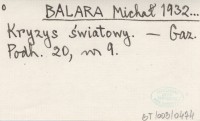 BALARA Michał 1932...
Kryzys światowy. — Gaz.
Podh. 20, nr 9.
BT/003/0474